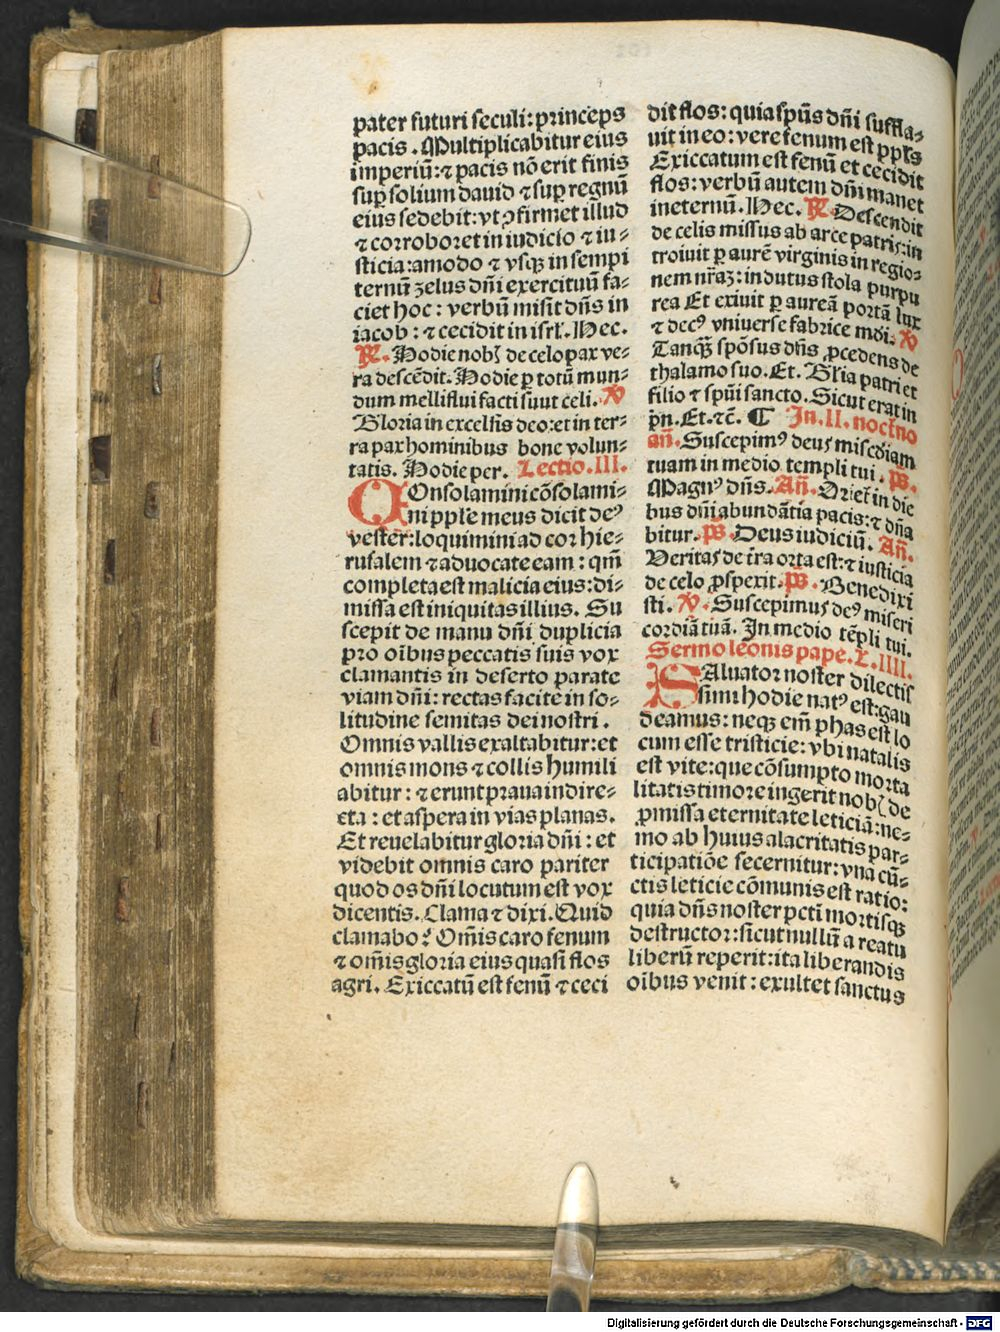 pater futuri seculi: princeps
pacis. Multiplicabitur eius
imperiū: ⁊ pacis nō erit finis
sup̱ solium dauid ⁊ sup̱ regnū
eius sedebit: vt ꝯfirmet illud
⁊ corroboret in iudicio ⁊ iu⸗
sticia: amodo ⁊ vsqꝫ in sempi
ternū zelus dn̄i exercituū fa⸗
ciet hoc: verbū misit dn̄s in
iacob: ⁊ cecidit in isrl̄. Hec.
℟. Hodie nobꝭ de celo pax ve⸗
ra descēdit. Hodie ꝑ totū mun⸗
dum melliflui facti suut celi. ℣
Gloria in excelsis deo: et in ter⸗
ra pax hominibus bone volun⸗
tatis. Hodie per. Lectio. III.
COnsolamini cōsolami⸗
ni pple meus dicit deꝰ
vester: loquimini ad cor hie⸗
rusalem ⁊ aduocate eam: qm̄
completa est malicia eius: di⸗
missa est iniquitas illius. Su
scepit de manu dn̄i duplicia
pro oībus peccatis suis vox
clamantis in deserto parate
viam dn̄i: rectas facite in so⸗
litudine semitas dei nostri.
Omnis vallis exaltabitur: et
omnis mons ⁊ collis humili
abitur: ⁊ erunt praua in dire⸗
cta: et aspera in vias planas.
Et reuelabitur gloria dn̄i: et
videbit omnis caro pariter
quod os dn̄i locutum est vox
dicentis. Clama ⁊ dixi. Quid
clamabo? Om̄is caro fenum
⁊ om̄is gloria eius quasi flos
agri. Exiccatū est fenū ⁊ ceci
dit flos: quia spūs dn̄i suffla⸗
uit in eo: vere fenum est ppl̄s
Exiccatum est fenū et cecidit
flos: verbū autem dn̄i manet
in eternū. Hec. ℟. Descendit
de celis missus ab arce patris: in
troiuit ꝑ aurē virginis in regio⸗
nem nr̄aꝫ: indutus stola purpu
rea Et exiuit ꝑ aureā portā lux
⁊ decꝰ vniuerse fabrice mūdi. ℣
Tanqꝫ spōsus dn̄s ꝓcedens de
thalamo suo. Et. Gl̄ia patri et
filio ⁊ spūi sancto. Sicut erat in
pn̄. Et. ⁊c̄. ¶ In. II. noct̄no
an̄. Suscepimꝰ deus misc̄diam
tuam in medio templi tui. p̄s.
Magnꝰ dn̄s. An̄. Oriet̄ in die
bus dn̄i abundātia pacis: ⁊ dn̄a
bitur. p̄s. Deus iudiciū. An̄.
Veritas de t̄ra orta est: ⁊ iusticia
de celo ꝓspexit. p̄s. Benedixi
sti. ℣. Suscepimus deꝰ miseri
cordiā tuā. In medio tēpli tui.
Sermo leonis pape. L. IIII.
SAluator noster dilectis
simi hodie natꝰ est: gau
deamus: neqꝫ em̄ phas est lo
cum esse tristicie: vbi natalis
est vite: que cōsumpto morta
litatis timore ingerit nobꝭ de
ꝓmissa eternitate leticiā: ne⸗
mo ab huius alacritatis par⸗
ticipatiōe secernitur: vna cū⸗
ctis leticie cōmunis est ratio:
quia dn̄s noster pctī mortisqꝫ
destructor: sicut nullū a reatu
liberū reperit: ita liberandis
oībus venit: exultet sanctus
Digitalisierung gefördert durch die Deutsche Forschungsgemeinschaft - DFG